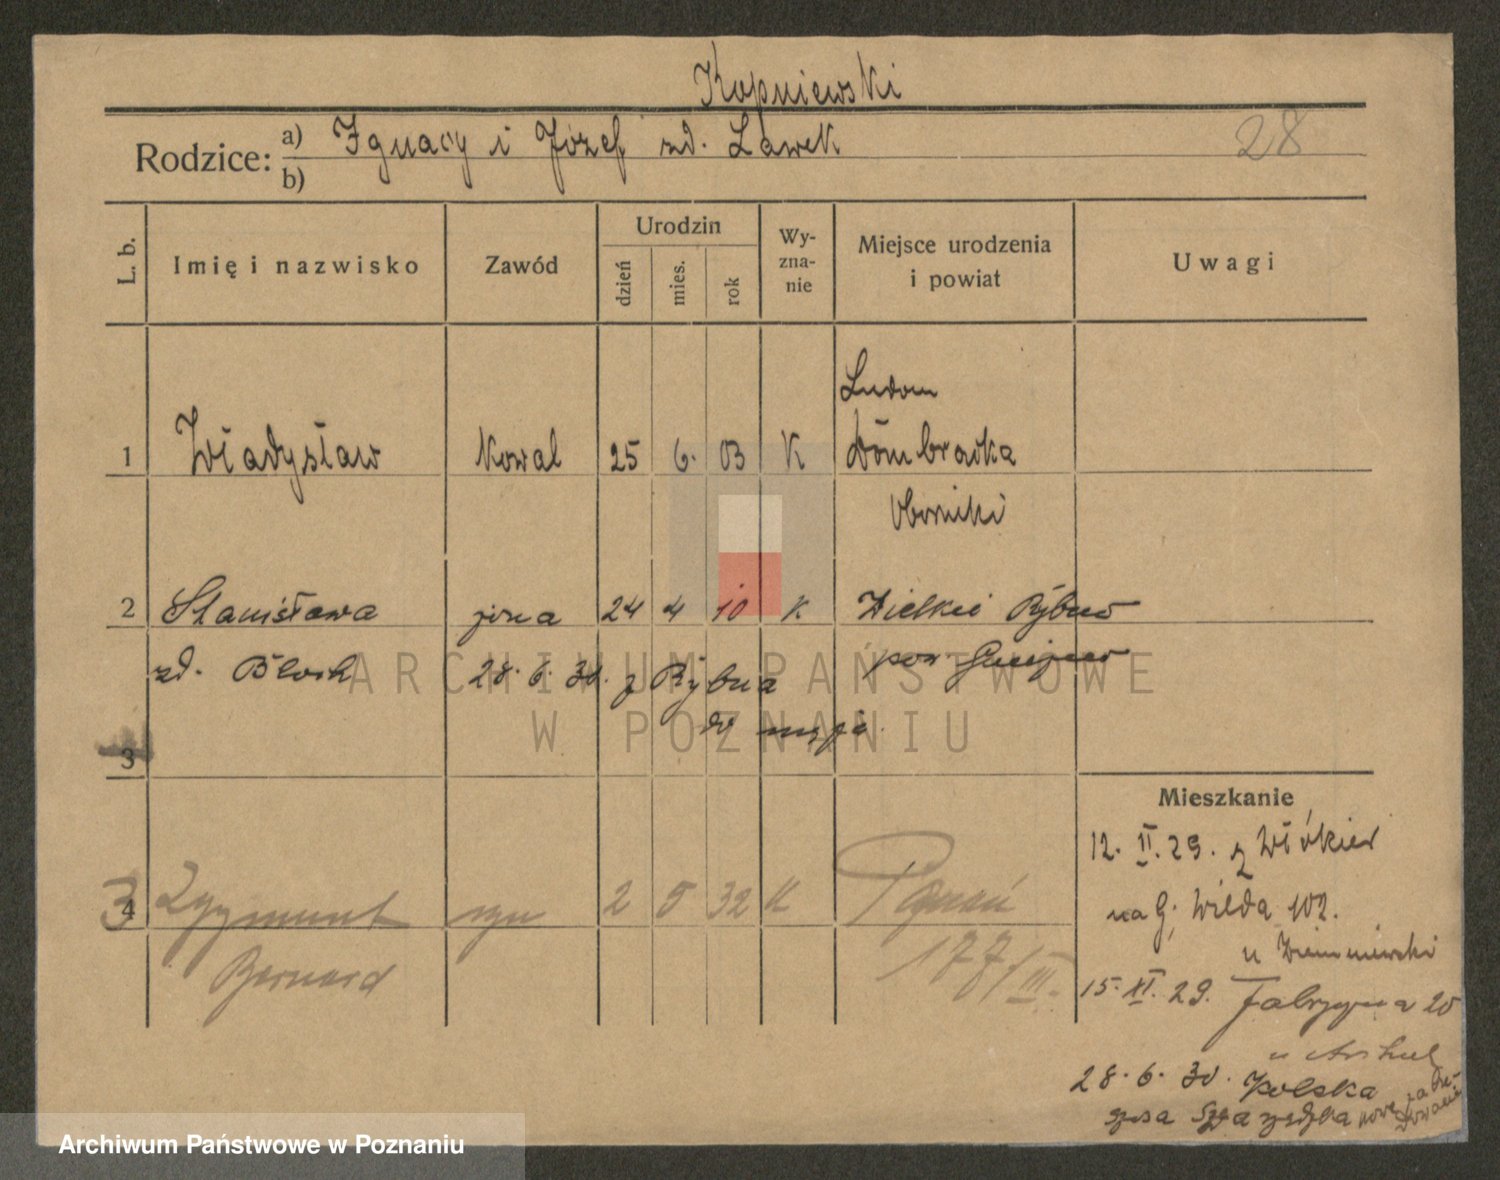 Kopniewski
28
Rodzice: a) Ignacy i Józef zd. Ławek
b)
L. b. Imię i nazwisko Zawód Urodzin dzień mies. rok Wyznanie Miejsce urodzenia i powiat Uwagi
Ludom
1 Władysław Kowal 25 6. 03 K Dombrówka
Oborniki
2 Stanisława żona 24 4 10 K Wielkie Rybno
zd. Bloch 28. 6. 30. z Rybna pow Gniezno
do męża
3
Mieszkanie
12. II. 29. z Włókien
3 4 Zygmunt syn 2 5 32 K Poznań
na G; Wilda 102.
Bernard 177/III.
u
15. XI. 29. Fabryczna 20
u
28. 6. 30. Polska
szosa
ARCHIWUM PAŃSTWOWE
W POZNANIU
Archiwum Państwowe w Poznaniu